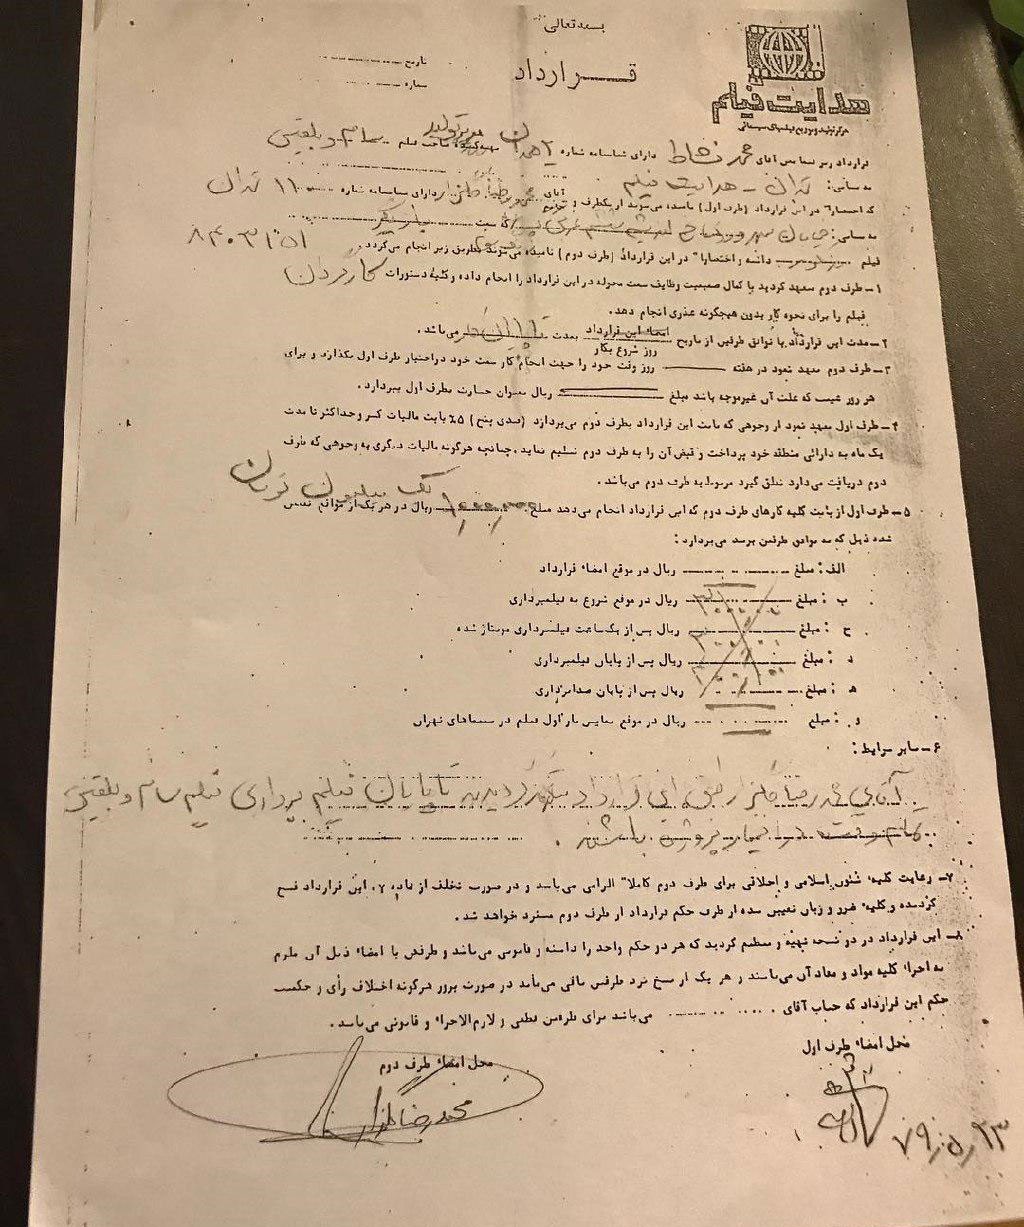 بسمه تعالی
تاریخ
شماره
قرارداد
هدایت فیلم
مرکز تولید و توزیع فیلمهای سینمائی
قرارداد زیر فیمابین آقای محمد نشاط دارای شناسنامه شماره تهیه‌کننده صاحب فیلم سام و بلقیس
به نشانی: تهران - هدایت فیلم
که اختصاراً در این قرارداد (طرف اول) نامیده می‌شود از یکطرف و آقای محمدرضا گلزار دارای شناسنامه شماره ۱۱۰۰۰ تهران
به نشانی: خیابان سهروردی که سمت بازیگر
فیلم داشته و اختصاراً در این قرارداد (طرف دوم) نامیده می‌شوند بطریق زیر انجام می‌گردد. ۸۴۰۳۱۵۱
۱- طرف دوم متعهد گردید با کمال صمیمیت وظایف سمت محوله در این قرارداد را انجام داده و کلیه دستورات کارگردان
فیلم را برای نحوه کار بدون هیچگونه عذری انجام دهد.
۲- مدت این قرارداد با توافق طرفین از تاریخ امضاء این قرارداد بمدت تا پایان کار می‌باشد.
روز شروع بکار
۳- طرف دوم متعهد نمود در هفته روز وقت خود را جهت انجام کار سمت خود در اختیار طرف اول بگذارد و برای
هر روز غیبت که علت آن غیرموجه باشد مبلغ ریال بعنوان خسارت بطرف اول بپردازد.
۴- طرف اول متعهد نمود از وجوهی که بابت این قرارداد بطرف دوم می‌پردازد (صدی پنج) ۵٪ بابت مالیات کسر و حداکثر تا مدت
یک ماه به دارائی منطقه خود پرداخت و قبض آن را به طرف دوم تسلیم نماید. چنانچه هرگونه مالیات دیگری به وجوهی که طرف
دوم دریافت می‌دارد تعلق گیرد مربوط به طرف دوم می‌باشد.
یک میلیون تومان
۵- طرف اول از بابت کلیه کارهای طرف دوم که این قرارداد انجام می‌دهد مبلغ ریال در هر یک از مواقع تعیین
شده ذیل که به توافق طرفین برسد می‌پردازد:
الف: مبلغ ریال در موقع امضاء قرارداد
ب: مبلغ ریال در موقع شروع به فیلمبرداری
ج: مبلغ ریال پس از یکساعت فیلمبرداری مونتاژ شده
د: مبلغ ریال پس از پایان فیلمبرداری
ه: مبلغ ریال پس از پایان صدابرداری
و: مبلغ ریال در موقع نمایش بار اول فیلم در سینماهای تهران
۶- سایر شرایط:
آقای محمدرضا گلزار طبق این قرارداد متعهد گردیدند تا پایان فیلم برداری فیلم سام و بلقیس
تمام وقت در اختیار پروژه باشند.
۷- رعایت کلیه شئون اسلامی و اخلاقی برای طرف دوم کاملاً الزامی می‌باشد و در صورت تخلف از ماده ۷، این قرارداد فسخ
گردیده و کلیه ضرر و زیان تعیین شده از طرف حکم قرارداد از طرف دوم مسترد خواهد شد.
۸- این قرارداد در دو نسخه تهیه و تنظیم گردید که هر دو حکم واحد را داشته و قانونی می‌باشد و طرفین با امضاء ذیل آن ملزم
به اجراء کلیه مواد و مفاد آن می‌باشند و هر یک از نسخ نزد طرفین باقی می‌ماند در صورت بروز هرگونه اختلاف رأی و حکمیت
حکم این قرارداد که جناب آقای می‌باشد برای طرفین قطعی و لازم‌الاجراء و قانونی می‌باشد.
محل امضاء طرف اول
محل امضاء طرف دوم
محمدرضا گلزار
۷۹/۵/۲۳